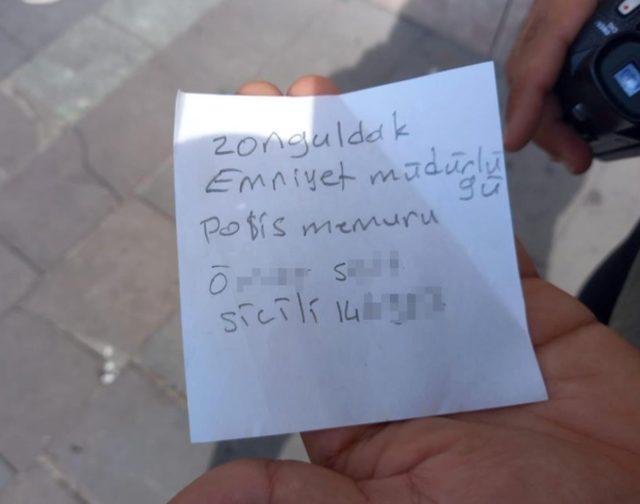 zonguldak
Emniyet müdürlü
gü
polis memuru
Ö S
sicili 14